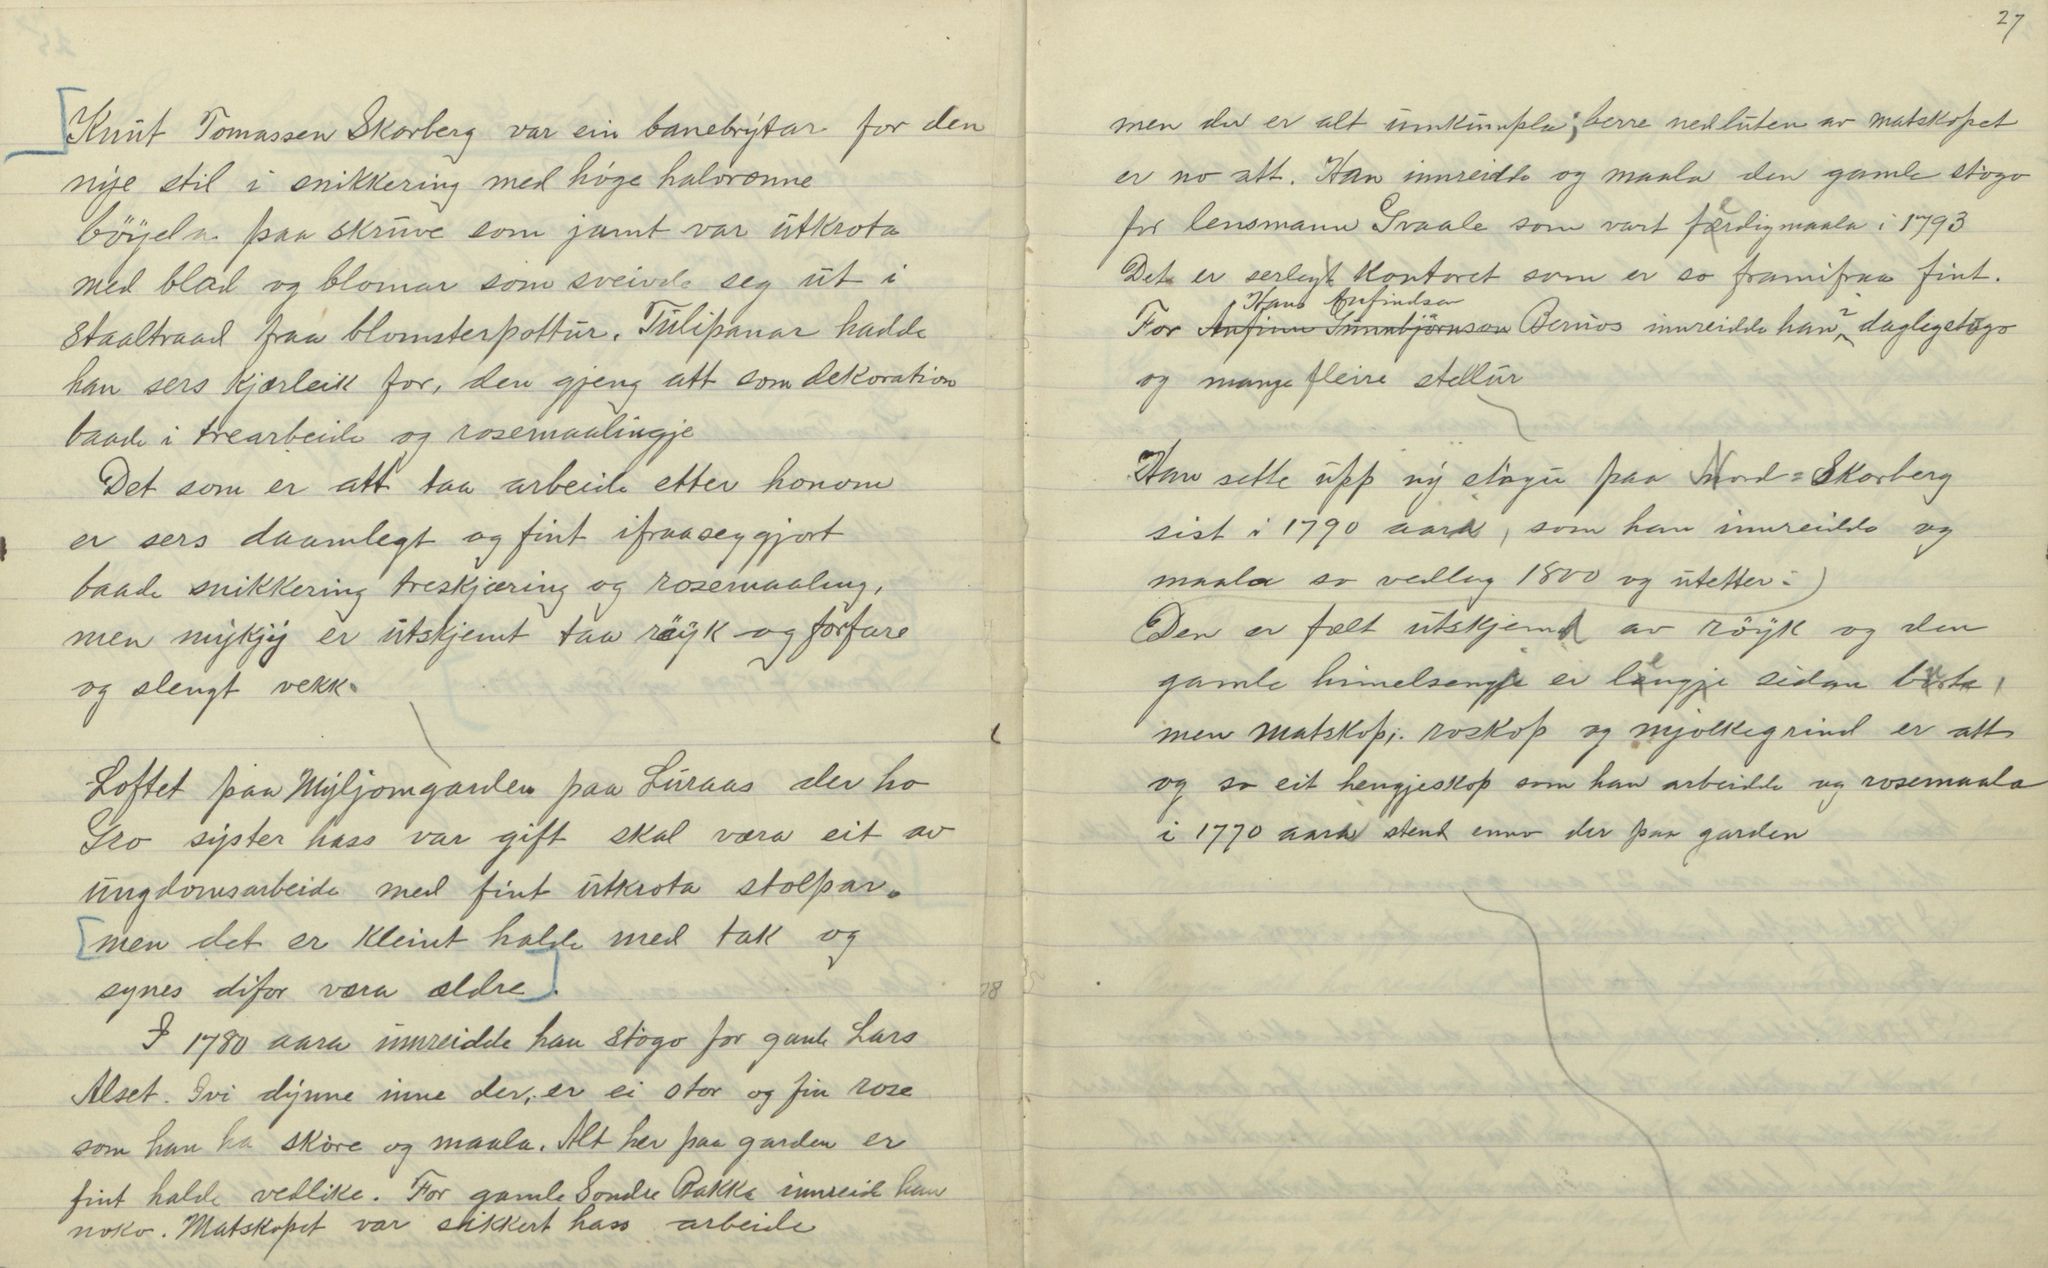 Knut Tomassen Skarberg var ein banebrytar for den
nye stil i snikkering med höge halvronne
böyela paa skruve som jamt var utkrota
med blad og blomar som sveivde seg ut i
staaltraad fraa blomsterpottur. Tulipanar hadde
han sers kjærleik for, den gjeng att som dekoration
baade i trearbeide og rosemaalingje
Det som er att taa arbeide etter honom
er sers daamlegt og fint ifraaseggjort
baade snikkering treskjæring og rosemaaling,
men mykjy er utskjemt taa röyk og forfare
og slengt vekk.
Loftet paa Myljomgarden paa Luraas der ho
Gro syster hass var gift skal væra eit av
ungdomsarbeide med fint utkrota stolpar.
[men det er kleint halde med tak og
synes difor væra ældre].
I 1780 aara innreidde han stogo for gamle Lars
Alset. Ivi dynne inne der, er ei stor og fin rose
som han ha skore og maala. Alt her paa garden er
fint halde vedlike. For gamle Sondre Bakka innreid han
noko. Matskapet var sikkert hass arbeide
27
men der er alt umkumpla; berre nedluten av matskopet
er no att. Han innreidde og maala den gamle stogo
for lensmann Svaale som vart færdigmaala i 1793
Det er serlegt kontoret som er so framifraa fint.
Hans Anfindsen
For Anfinn Sunnbjörnson Bernos innreidde han ? daglegstogo
og mange fleire stellur
Han sette upp ny stogu paa Nord=Skarberg
sist i 1790 aara, som han innreidde og
maala so vedlag 1800 og utetter.
Den er fælt utskjemd av röyk og den
gamle himelsengje er lengje sidan burte,
men matskop, roskop og mjolkegrind er att
og so eit hengjeskop som han arbeidde og rosemaala
i 1770 aara stend enno der paa garden
28